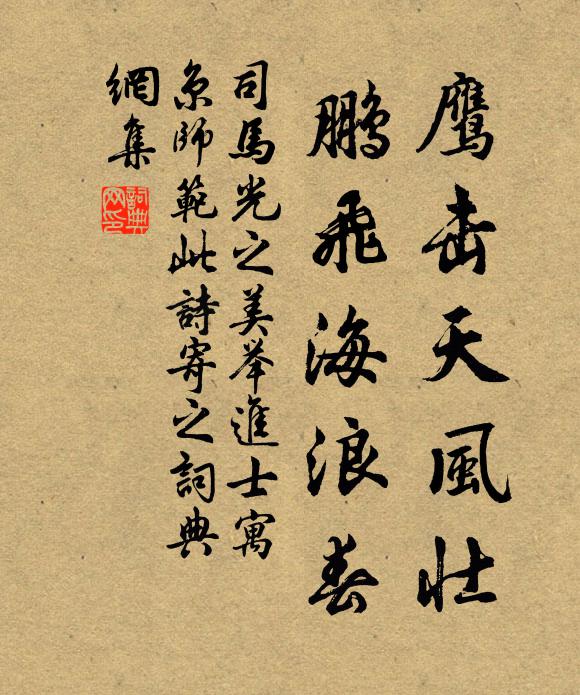 鹰击天風壮
鵬飛海浪春
司馬光之美举進士寓
京師範此詩寄之詞典
網集
詞典
网印